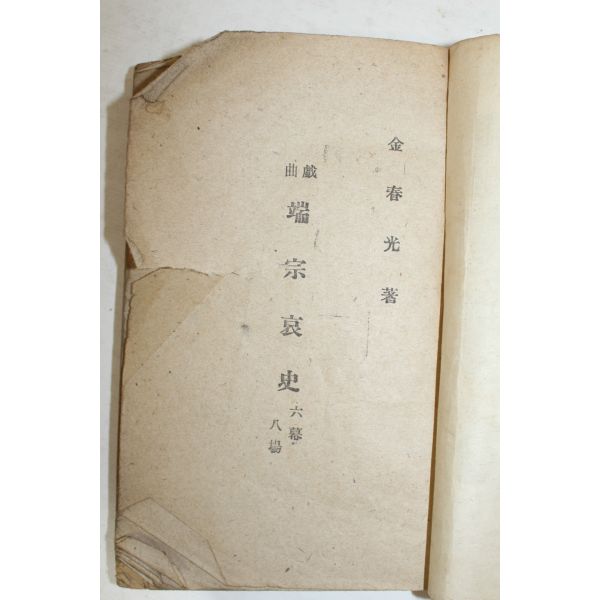 金春光著
戯曲
端宗哀史
六幕
八場